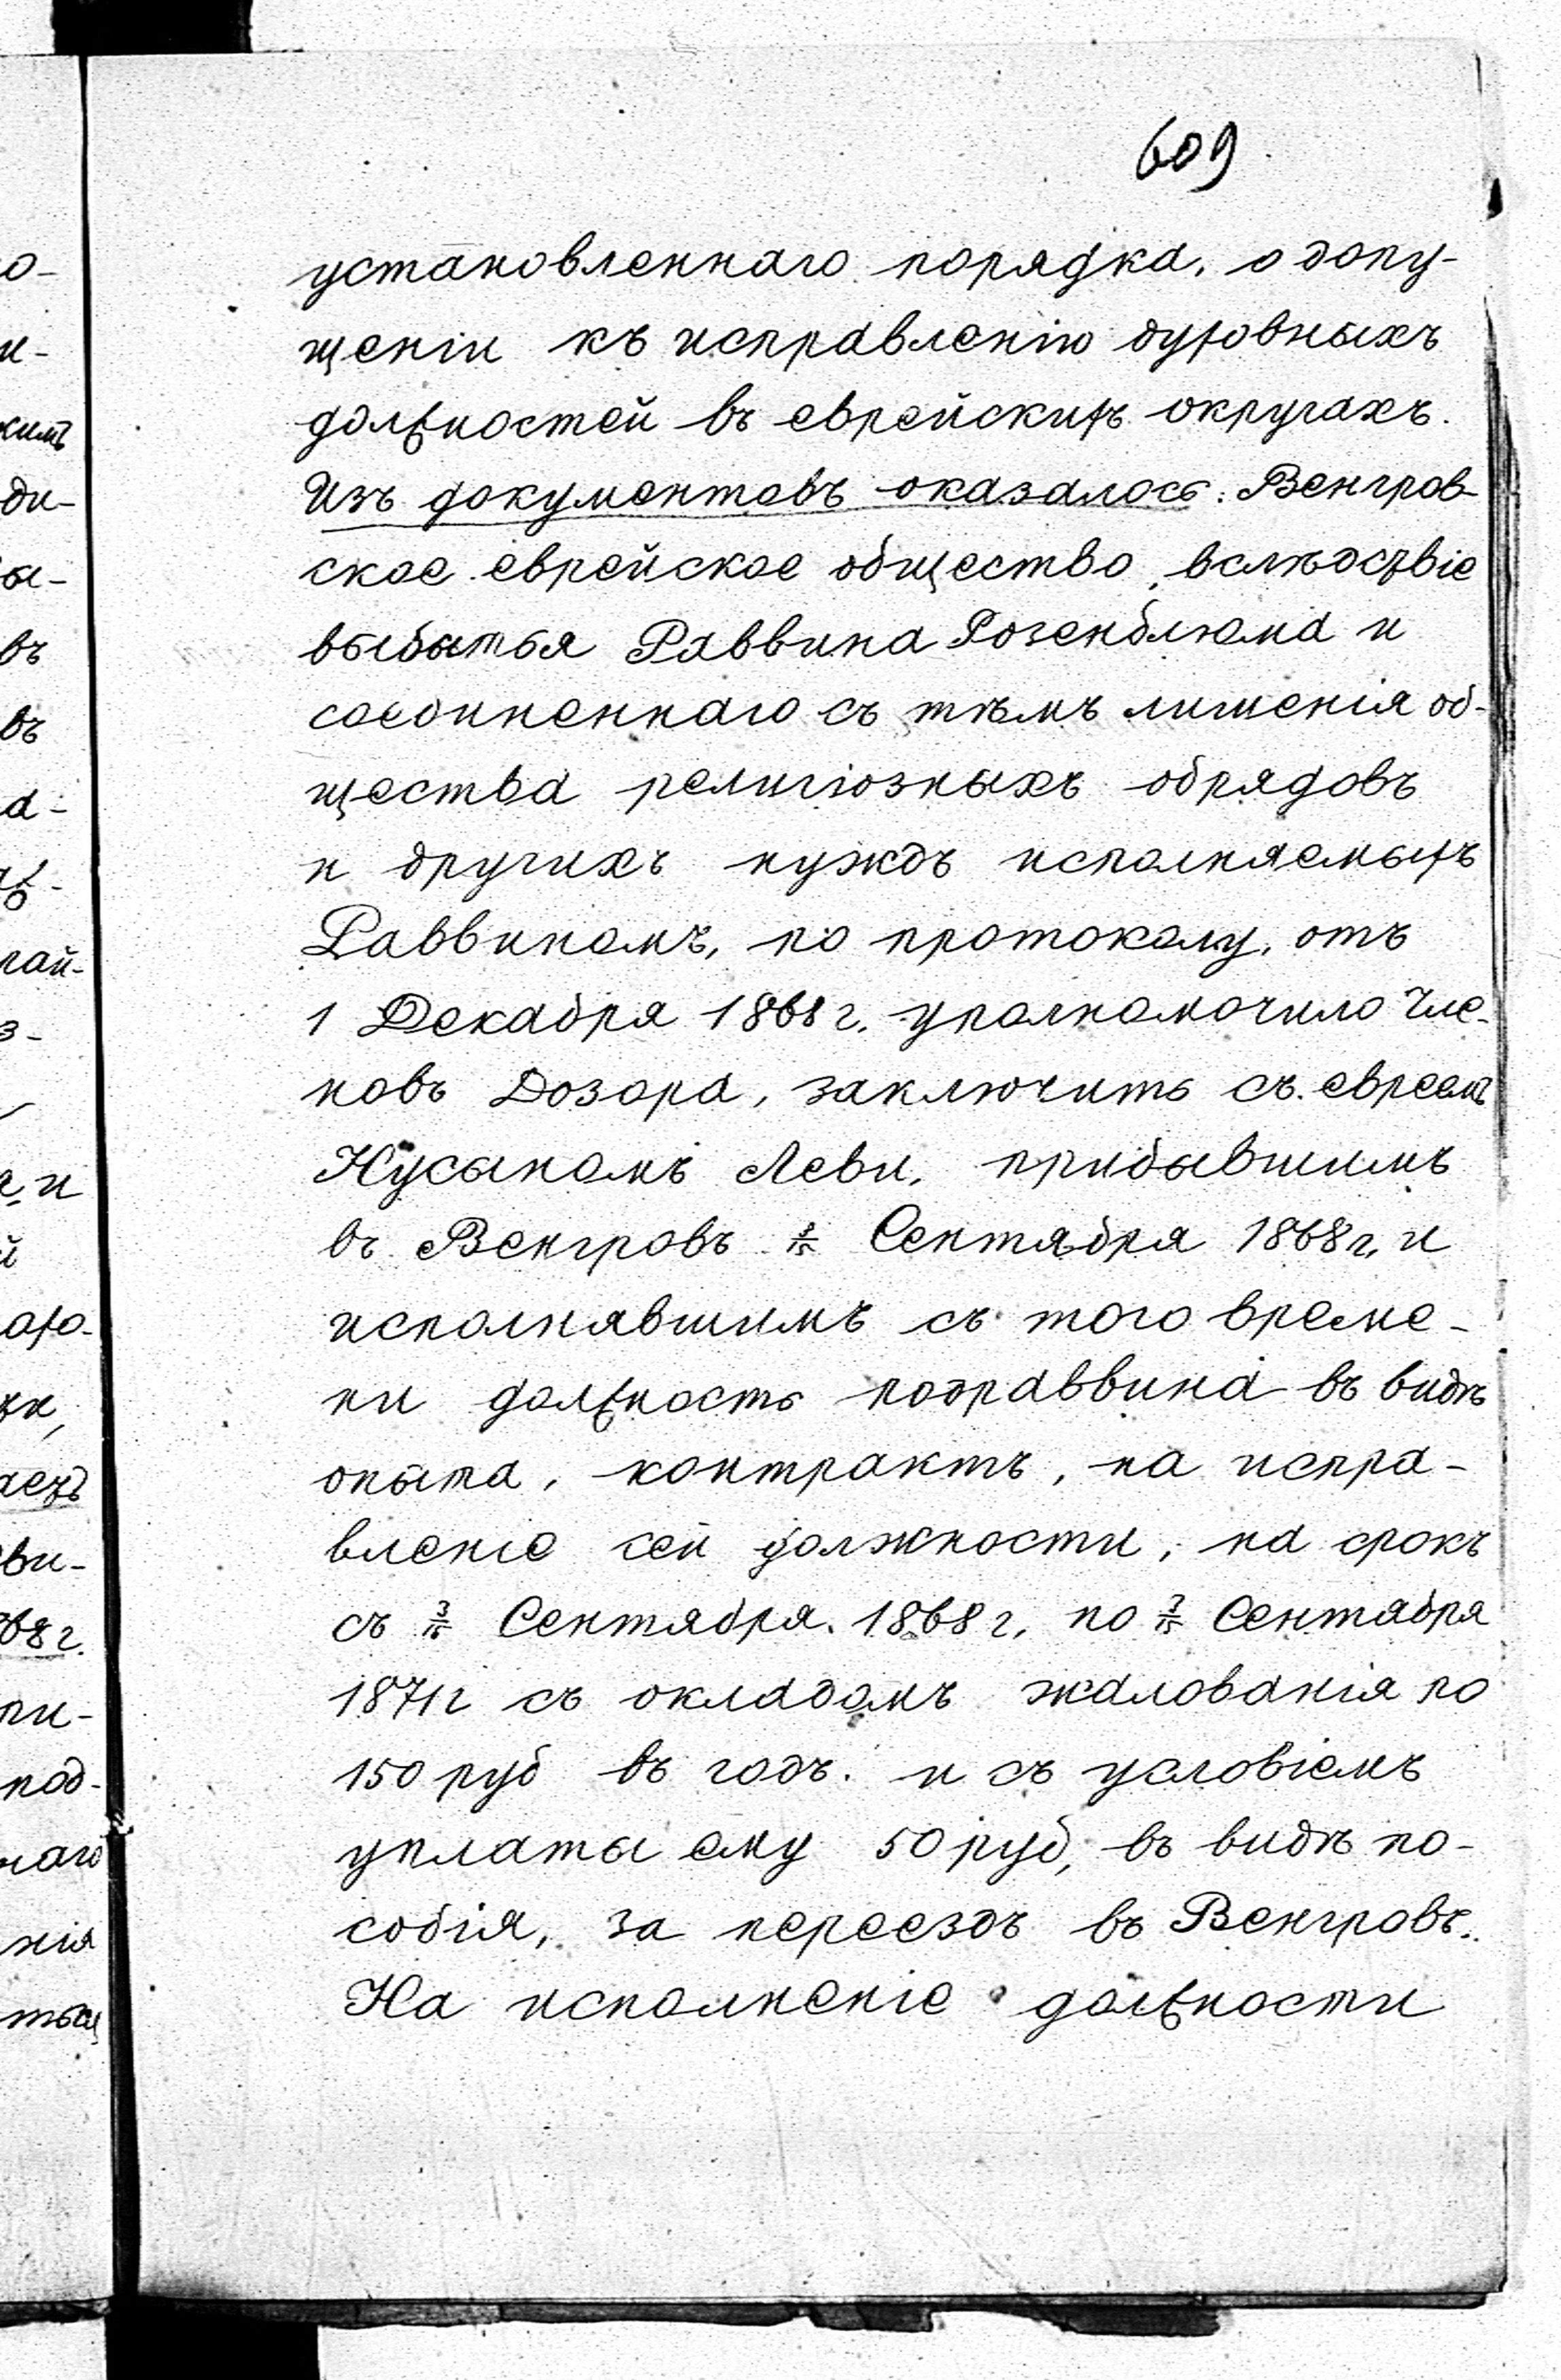 609
установленнаго порядка, о допу-
щеніи къ исправленію духовныхъ
должностей въ еврейскихъ округахъ.
Изъ документовъ оказалось: Венгров-
ское еврейское общество, вслѣдствіе
выбытья Раввина Розенблюма и
соединеннаго съ тѣмъ лишенія об-
щества религіозныхъ обрядовъ
и другихъ нуждъ исполняемыхъ
Раввиномъ, по протоколу, отъ
1 Декабря 1868 г. уполномочило Чле-
новъ Дозора, заключить съ евреемъ
Нусыномъ Леви, прибывшимъ
въ Венгровъ 3/15 Сентября 1868 г. и
исполнявшимъ съ того време-
ни должность подраввина въ видѣ
опыта, контрактъ, на испра-
вленіе сей должности, на срокъ
съ 3/15 Сентября 1868 г. по 3/15 Сентября
1871 г съ окладомъ жалованія по
150 руб въ годъ. и съ условіемъ
уплаты ему 50 руб, въ видѣ по-
собія, за переездъ въ Венгровъ.
На исполненіе должности